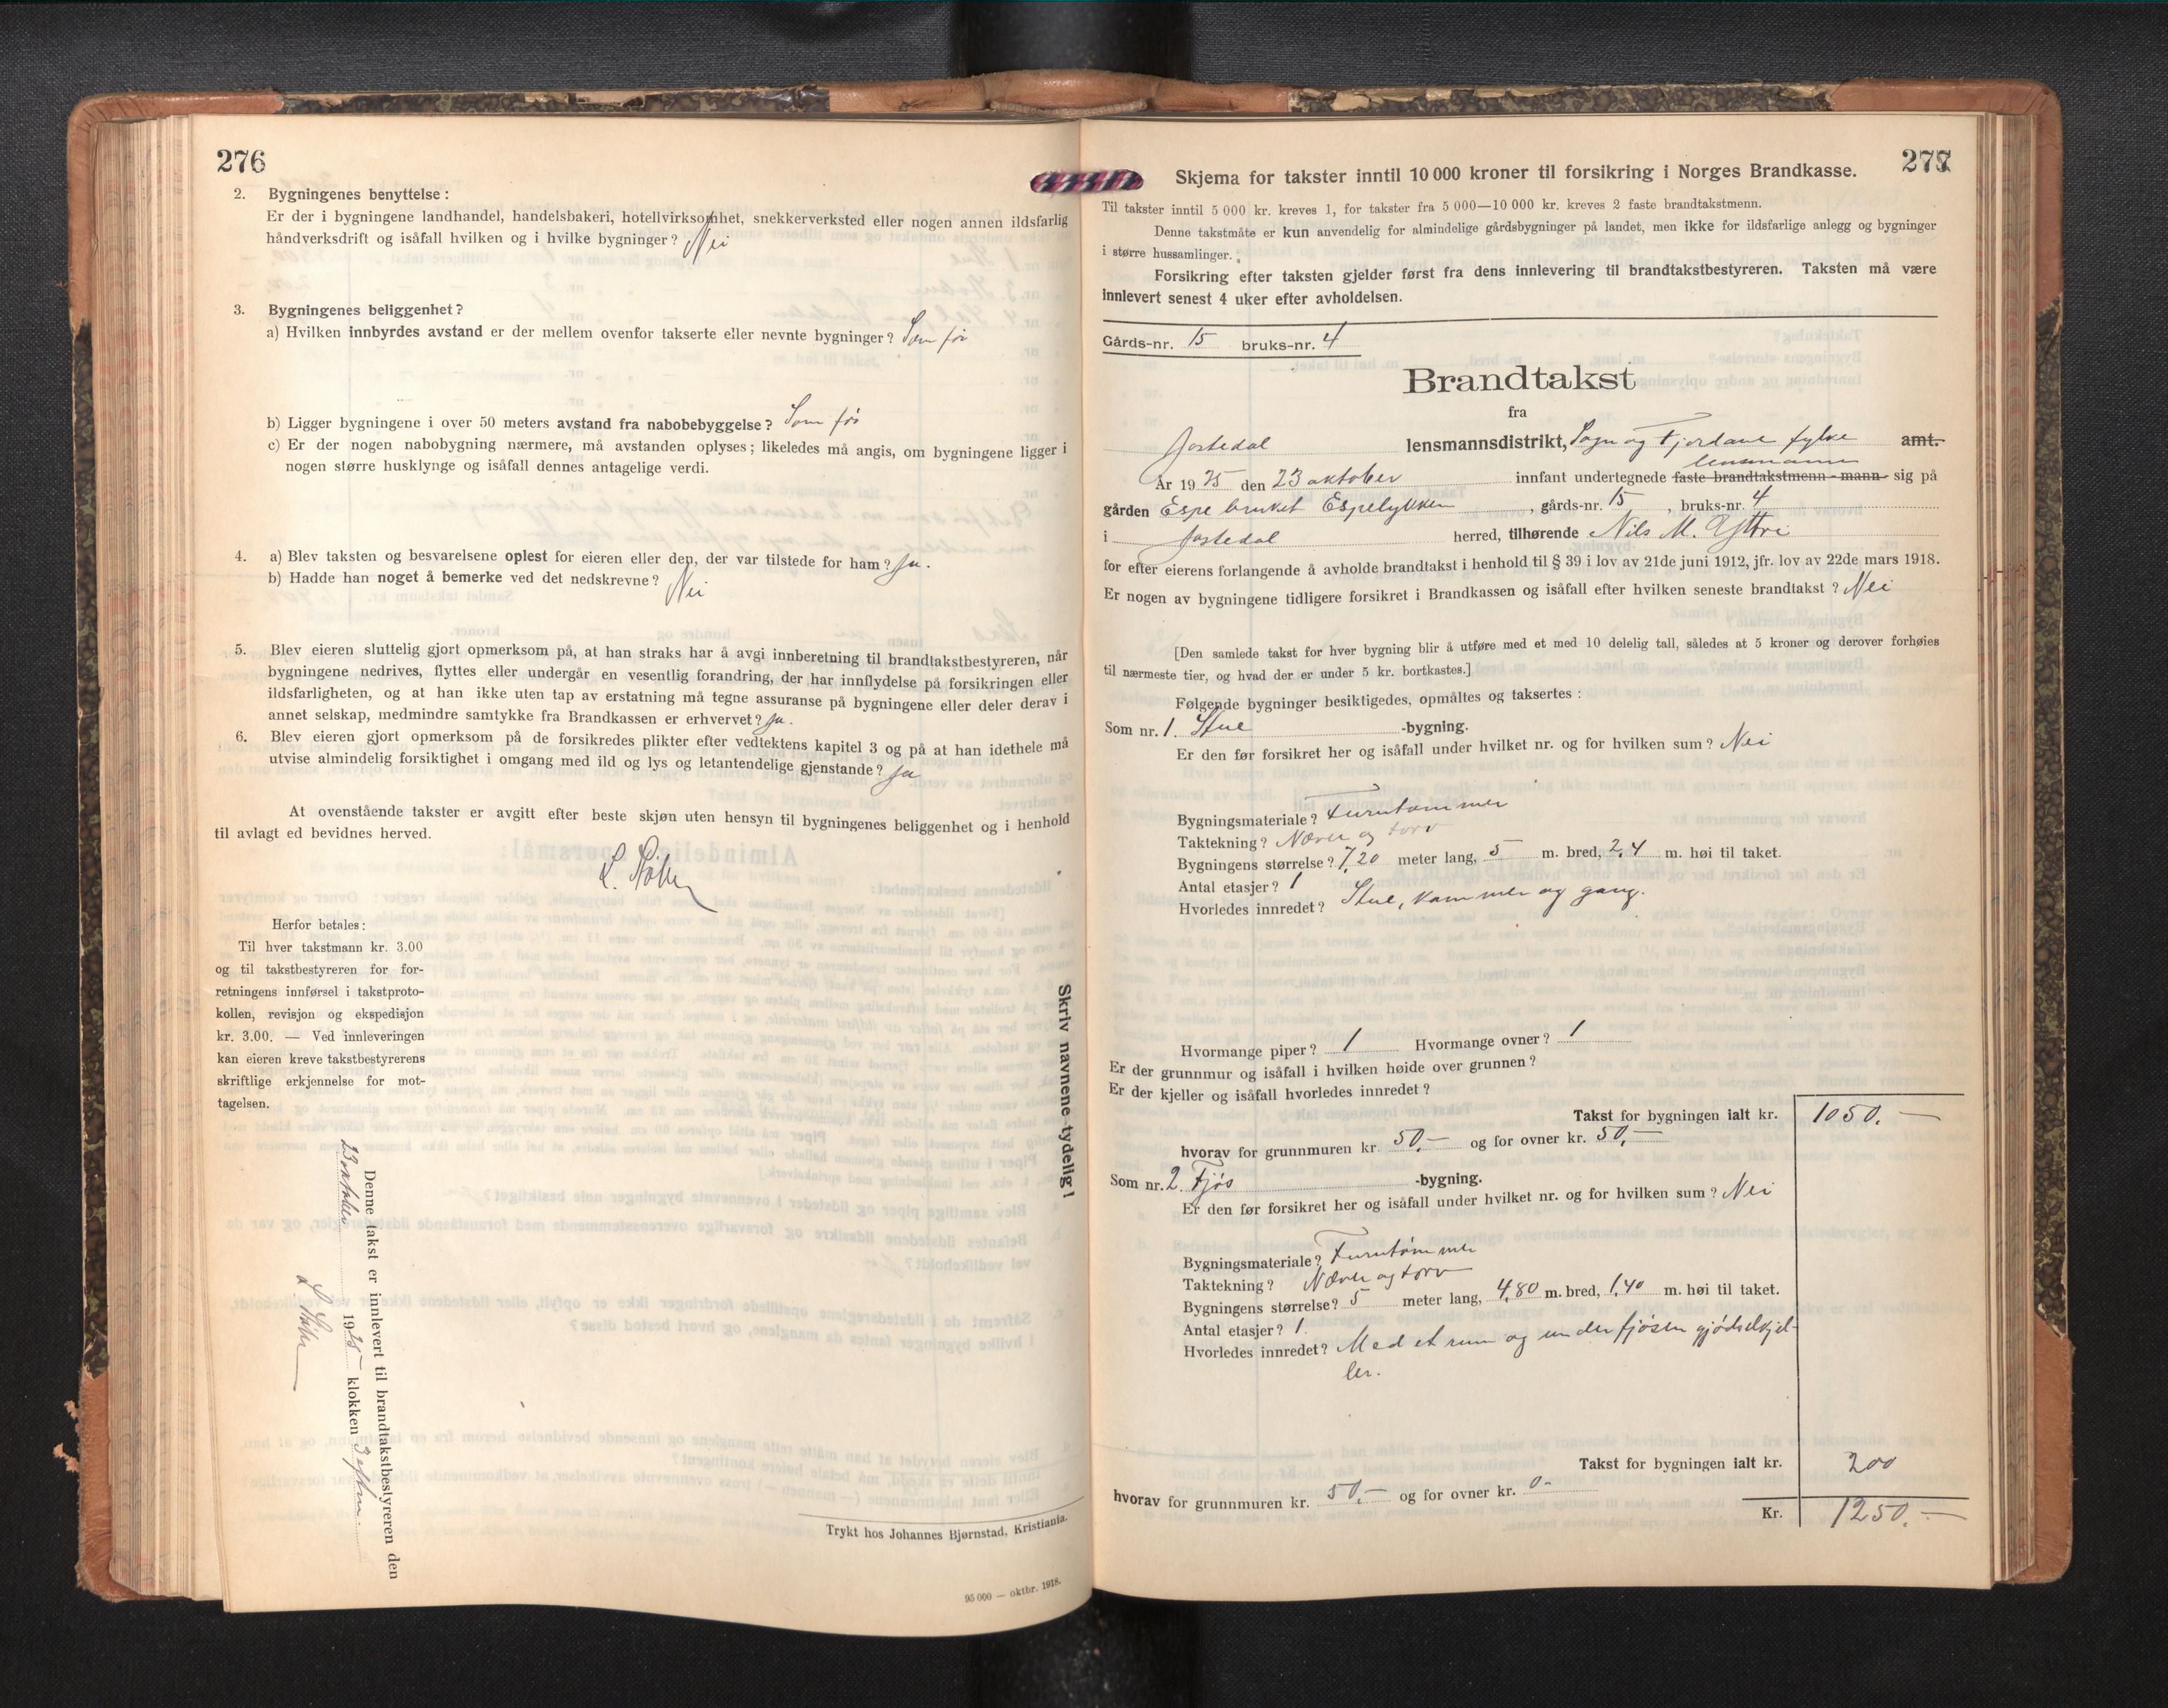 276
2. Bygningenes benyttelse:
Er der i bygningene landhandel, handelsbakeri, hotellvirksomhet, snekkerverksted eller nogen annen ildsfarlig
håndverksdrift og isåfall hvilken og i hvilke bygninger? Nei
3. Bygningenes beliggenhet?
a) Hvilken innbyrdes avstand er der mellem ovenfor takserte eller nevnte bygninger? Som før
b) Ligger bygningene i over 50 meters avstand fra nabobebyggelse? Som før
c) Er der nogen nabobygning nærmere, må avstanden oplyses; likeledes må angis, om bygningene ligger i
nogen større husklynge og isåfall dennes antagelige verdi.
4. a) Blev taksten og besvarelsene oplest for eieren eller den, der var tilstede for ham? Ja.
b) Hadde han noget å bemerke ved det nedskrevne? Nei
5. Blev eieren sluttelig gjort opmerksom på, at han straks har å avgi innberetning til brandtakstbestyreren, når
bygningene nedrives, flyttes eller undergår en vesentlig forandring, der har innflydelse på forsikringen eller
ildsfarligheten, og at han ikke uten tap av erstatning må tegne assuranse på bygningene eller deler derav i
annet selskap, medmindre samtykke fra Brandkassen er erhvervet? Ja.
6. Blev eieren gjort opmerksom på de forsikredes plikter efter vedtektens kapitel 3 og på at han idethele må
utvise almindelig forsiktighet i omgang med ild og lys og letantendelige gjenstande? Ja
At ovenstående takster er avgitt efter beste skjøn uten hensyn til bygningenes beliggenhet og i henhold
til avlagt ed bevidnes herved.
Herfor betales:
Til hver takstmann kr. 3.00
og til takstbestyreren for for-
retningens innførsel i takstproto-
kollen, revisjon og ekspedisjon
kr. 3.00. — Ved innleveringen
kan eieren kreve takstbestyrerens
skriftlige erkjennelse for mot-
tagelsen.
Skriv navnene tydelig!
Denne takst er innlevert til brandtakstbestyreren den
23 oktober 1925 klokken 3 eftm.
Trykt hos Johannes Bjørnstad, Kristiania.
95 000 — oktbr. 1918.
277
Skjema for takster inntil 10 000 kroner til forsikring i Norges Brandkasse.
Til takster inntil 5 000 kr. kreves 1, for takster fra 5 000—10 000 kr. kreves 2 faste brandtakstmenn.
Denne takstmåte er kun anvendelig for almindelige gårdsbygninger på landet, men ikke for ildsfarlige anlegg og bygninger
i større hussamlinger.
Forsikring efter taksten gjelder først fra dens innlevering til brandtakstbestyreren. Taksten må være
innlevert senest 4 uker efter avholdelsen.
Gårds-nr. 15 bruks-nr. 4
Brandtakst
fra
Jostedal lensmannsdistrikt, Sogn og Fjordane fylke amt.
lensmann
År 1925 den 23 oktober innfant undertegnede faste brandtakstmenn - mann sig på
gården Espe bruket Espelykken, gårds-nr. 15, bruks-nr. 4
i Jostedal herred, tilhørende Nils M. Yttri
for efter eierens forlangende å avholde brandtakst i henhold til § 39 i lov av 21de juni 1912, jfr. lov av 22de mars 1918.
Er nogen av bygningene tidligere forsikret i Brandkassen og isåfall efter hvilken seneste brandtakst? Nei
[Den samlede takst for hver bygning blir å utføre med et med 10 delelig tall, således at 5 kroner og derover forhøies
til nærmeste tier, og hvad der er under 5 kr. bortkastes.]
Følgende bygninger besiktigedes, opmåltes og taksertes:
Som nr. 1. Stue -bygning.
Er den før forsikret her og isåfall under hvilket nr. og for hvilken sum? Nei
Bygningsmateriale? Furutømmer
Taktekning? Næver og torv
Bygningens størrelse? 7,20 meter lang, 5 m. bred, 2,4 m. høi til taket.
Antal etasjer? 1
Hvorledes innredet? Stue, kammer og gang.
Hvormange piper? 1 Hvormange ovner? 1
Er der grunnmur og isåfall i hvilken høide over grunnen?
Er der kjeller og isåfall hvorledes innredet?
Takst for bygningen ialt kr. 1050.—
hvorav for grunnmuren kr. 50,— og for ovner kr. 50,—
Som nr. 2. Fjøs -bygning.
Er den før forsikret her og isåfall under hvilket nr. og for hvilken sum? Nei
Bygningsmateriale? Furutømmer
Taktekning? Næver og torv
Bygningens størrelse? 5 meter lang, 4,80 m. bred, 1,40 m. høi til taket.
Antal etasjer? 1.
Hvorledes innredet? Med et rum og under fjøsen gjødselkjel-
ler.
Takst for bygningen ialt kr. 200
hvorav for grunnmuren kr. 50,— og for ovner kr. 0-
Kr. 1250.—